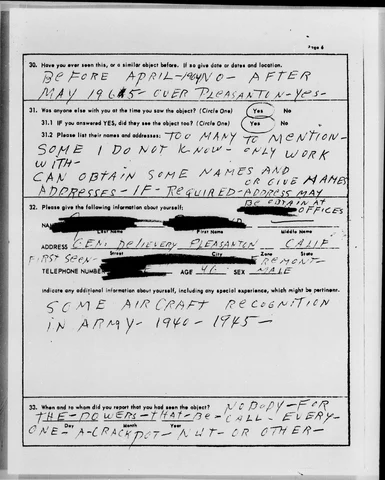 Page 6
30. Have you ever seen this, or a similar object before. If so give date or dates and location.
BEFORE APRIL-1964 NO- AFTER
MAY 1965- OVER PLEASANTON-YES-
31. Was anyone else with you at the time you saw the object? (Circle One) Yes No
31.1 IF you answered YES, did they see the object too? (Circle One) Yes No
31.2 Please list their names and addresses: TOO MANY TO MENTION-
SOME I DO NOT KNOW- ONLY WORK
WITH-
CAN OBTAIN SOME NAMES AND
OR GIVE NAMES
ADDRESSES-IF-REQUIRED-ADDRESS MAY
BE OBTAIN AT
OFFICES
32. Please give the following information about yourself:
Last Name First Name Middle Name
ADDRESS GEN. DELIVERY PLEASANTON CALIF
Street City Zone State
FIRST SEEN-
TELEPHONE NUMBER AGE 46 SEX MALE
Indicate any additional information about yourself, including any special experience, which might be pertinent.
SOME AIRCRAFT RECOGNITION
IN ARMY- 1940-1945-
33. When and to whom did you report that you had seen the object? NOBODY-FOR
THE-POWERS-THAT-BE-CALL-EVERY-
ONE-A-CRACKPOT-NUT-OR OTHER-
Day Month Year